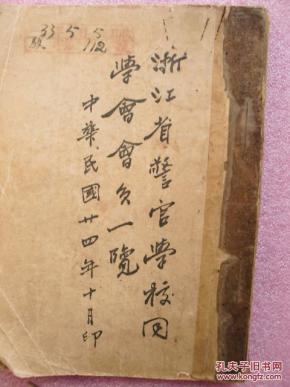 浙江省警官學校同
學會會員一覽
中華民國廿四年十月印
33 5 5
112
孔夫子旧书网